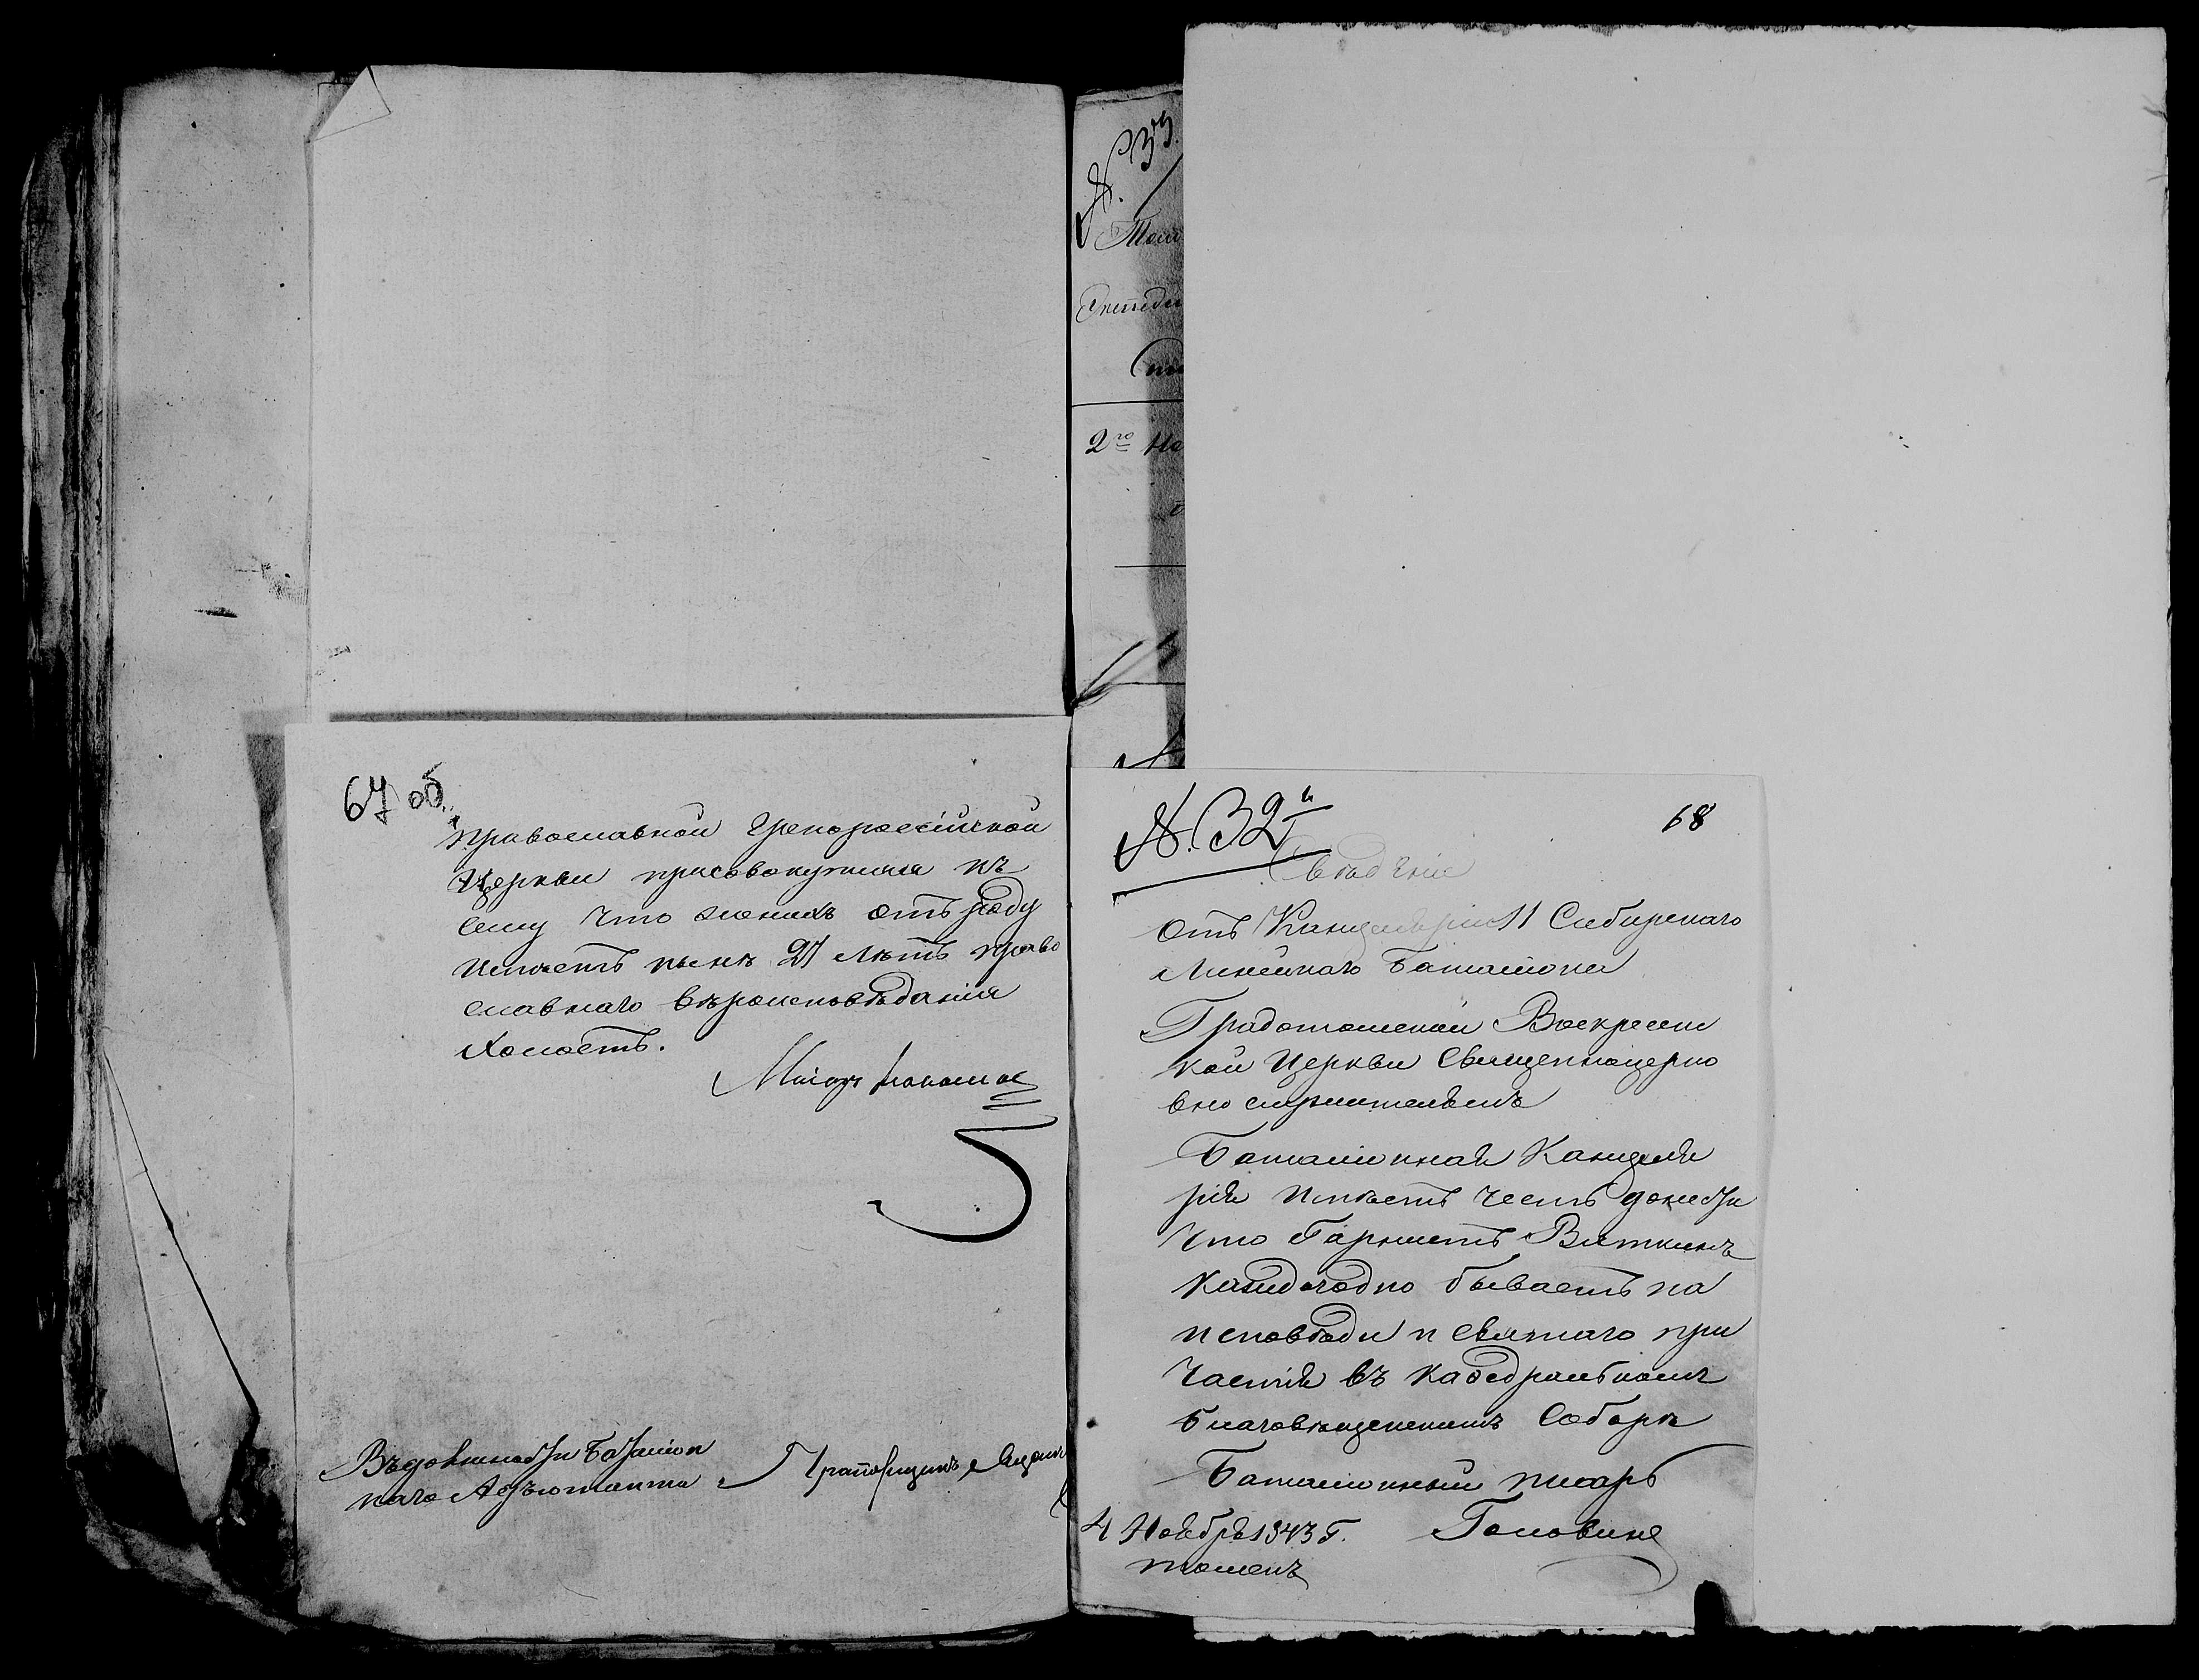 67 об.
православной Грекороссійской
Церкви присовокупляя къ
сему что женихъ отъ роду
имѣетъ нынѣ 21 лѣтъ право
славнаго вѣроисповѣданія
холостъ.
Маіоръ
Въ должности Баталіон
наго Адъютанта Прапорщикъ
№ 33.
2го
№ 32й
68
Свѣдѣніе
Отъ Канцеляріи 11 Сибирскаго
Линейнаго Баталіона
Градотомской Воскресен
кой Церкви Священноцерко
вно служителемъ
Баталіонная Канцеля
рія имѣетъ честь донести
что Гарнистъ Вяткинъ
каждогодно бываетъ на
исповѣди и Святаго при
частія въ Кафедральномъ
Благовѣщенскимъ Соборѣ
Баталіонный писарь
4 Ноября 1843 Г. Головинъ
Томскъ